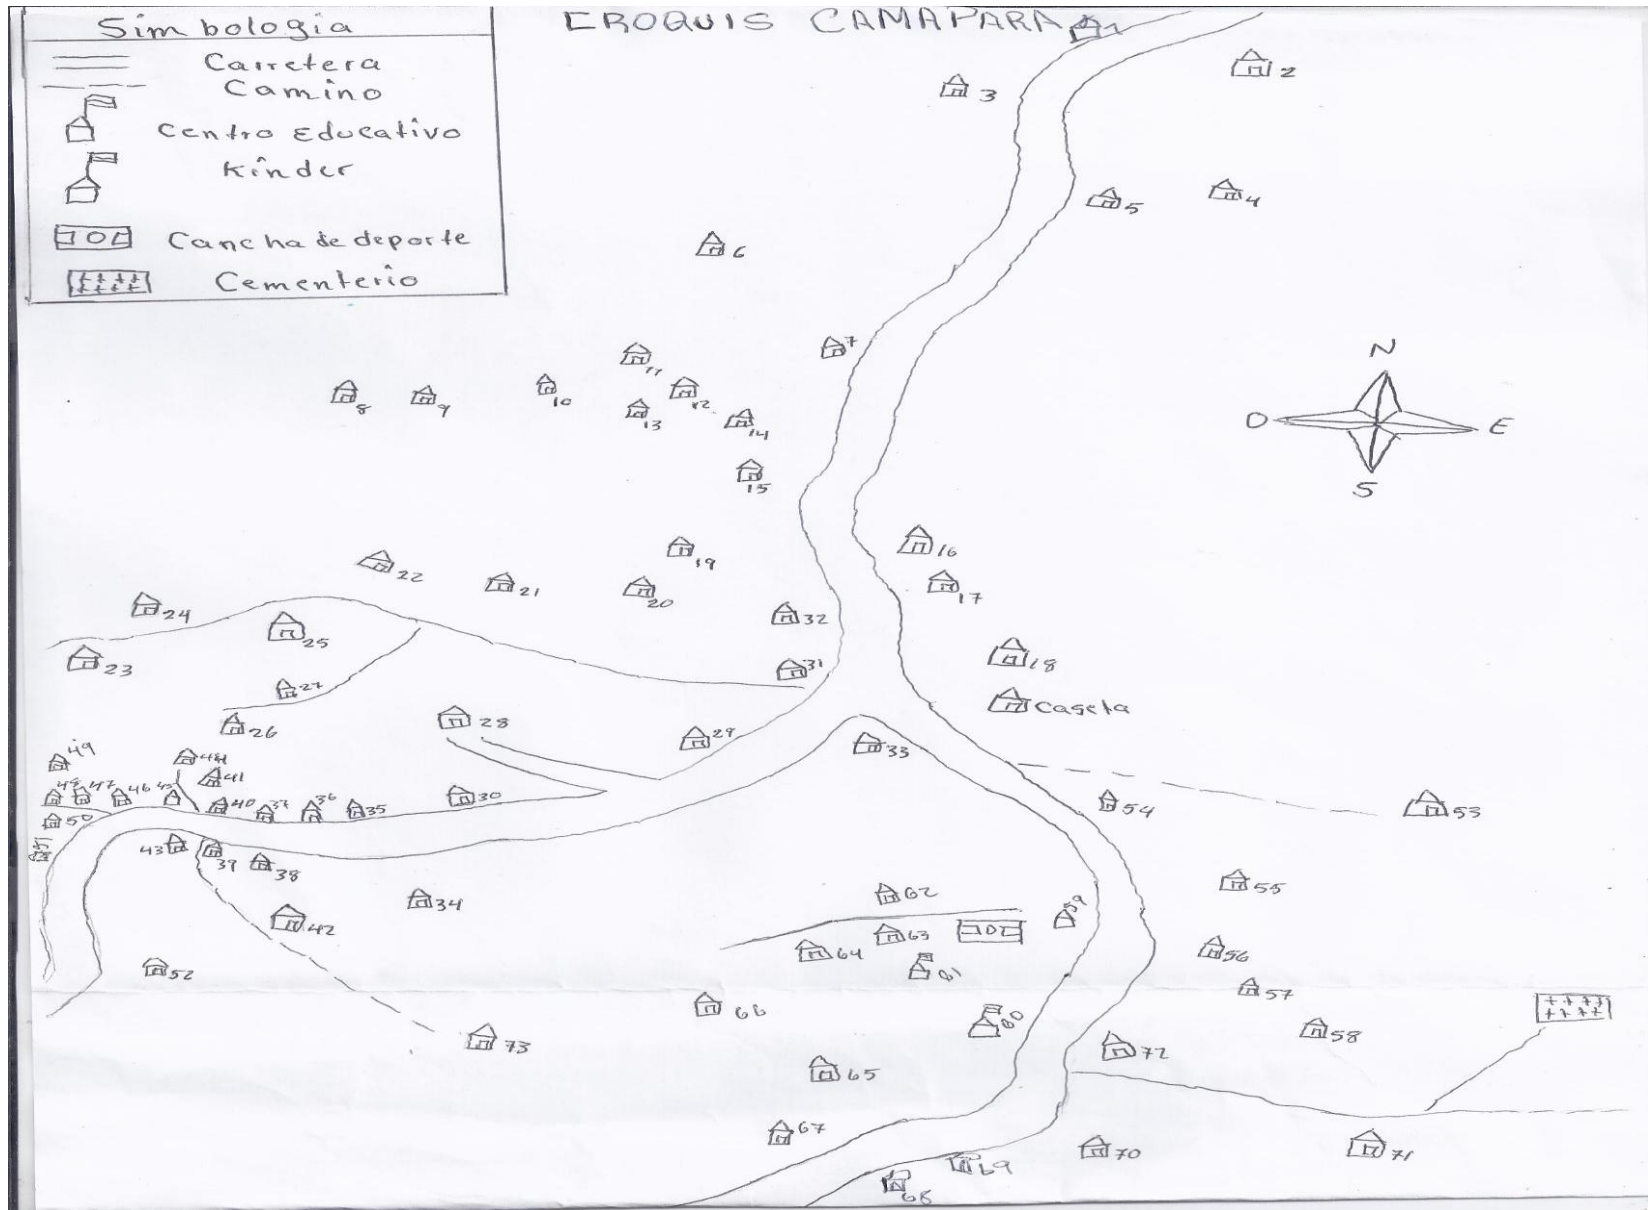 Simbologia
Carretera
Camino
Centro Educativo
Kinder
Cancha de deporte
Cementerio
CROQUIS CAMAPARA
1
2
3
4
5
6
7
8
9
10
11
12
13
14
15
N
O
E
S
16
17
18
Caseta
19
20
21
22
23
24
25
26
27
28
29
30
31
32
33
34
35
36
37
38
39
40
41
42
43
44
45
46
47
48
49
50
51
52
53
54
55
56
57
58
59
60
61
62
63
64
65
66
67
68
69
70
71
72
73